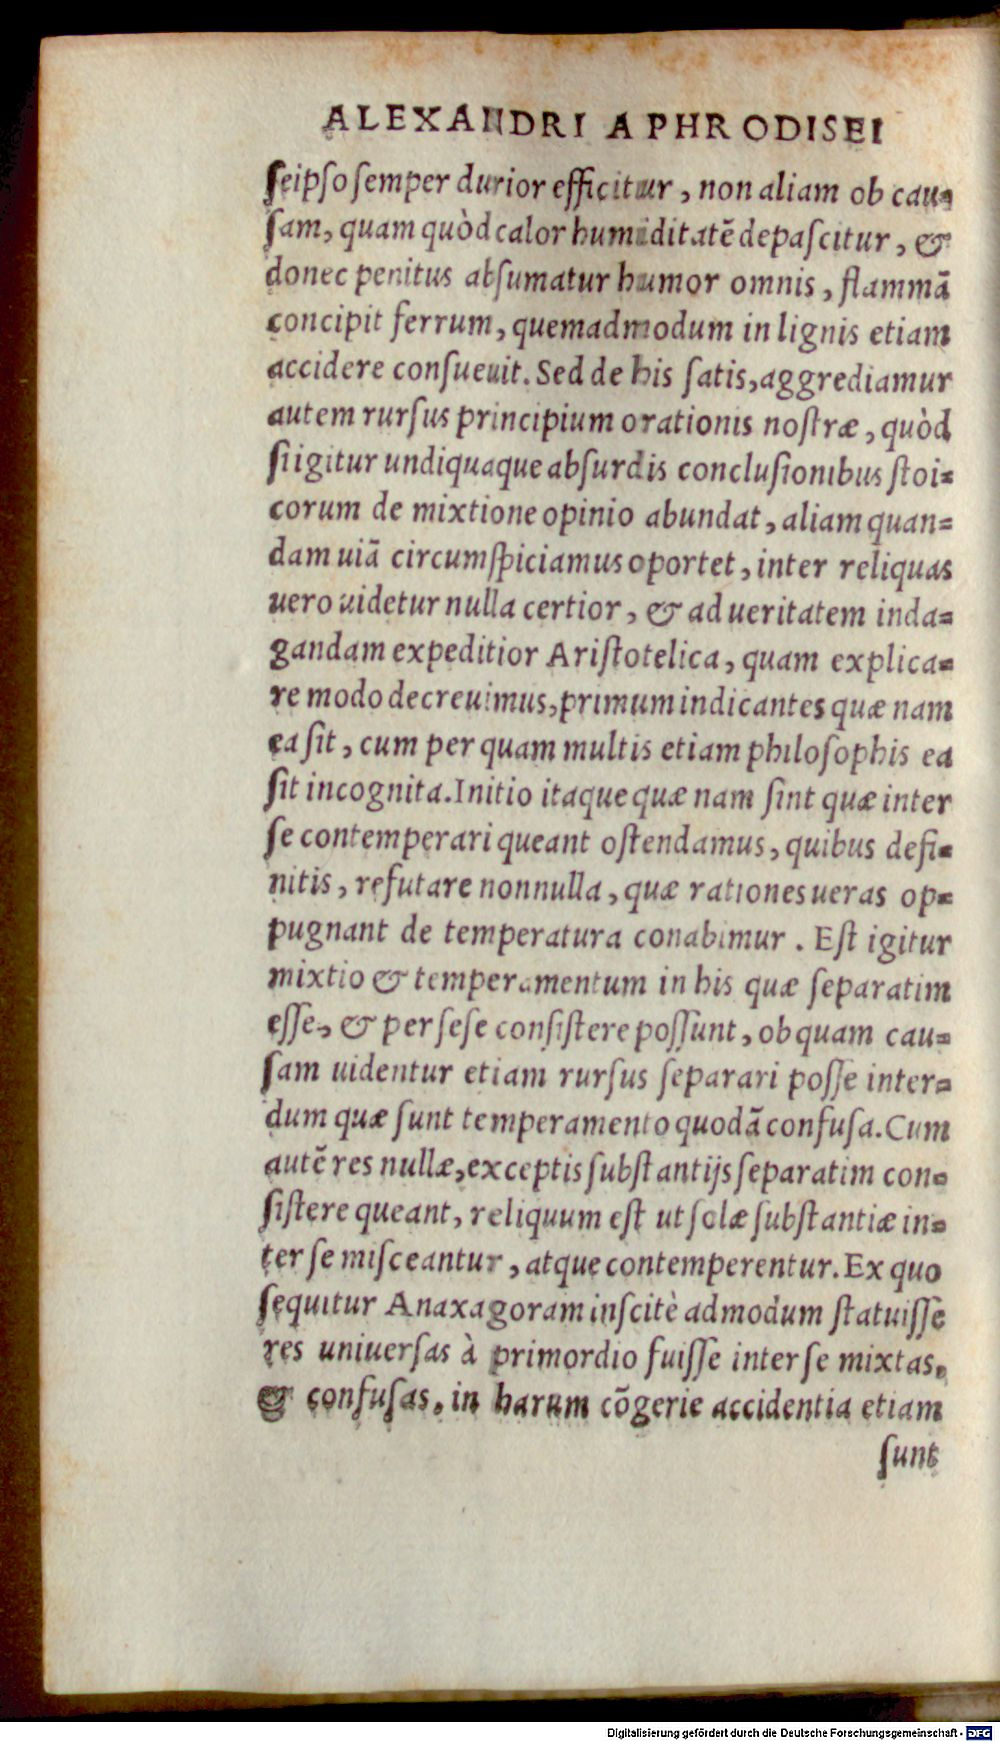 ALEXANDRI APHRODISEI
ſeipſo ſemper durior efficitur, non aliam ob cau-
ſam, quam quòd calor humiditatē depaſcitur, &
donec penitus abſumatur humor omnis, flammā
concipit ferrum, quemadmodum in lignis etiam
accidere conſueuit. Sed de his ſatis, aggrediamur
autem rurſus principium orationis noſtræ, quòd
ſi igitur undiquaque abſurdis concluſionibus ſtoi-
corum de mixtione opinio abundat, aliam quan-
dam uiā circumſpiciamus oportet, inter reliquas
uero uidetur nulla certior, & ad ueritatem inda-
gandam expeditior Ariſtotelica, quam explica-
re modo decreuimus, primum indicantes quæ nam
ea ſit, cum per quam multis etiam philoſophis ea
ſit incognita. Initio itaque quæ nam ſint quæ inter
ſe contemperari queant oſtendamus, quibus defi-
nitis, refutare nonnulla, quæ rationes ueras op-
pugnant de temperatura conabimur. Eſt igitur
mixtio & temperamentum in his quæ ſeparatim
eſſe, & per ſeſe conſiſtere poſſunt, ob quam cau-
ſam uidentur etiam rurſus ſeparari poſſe inter-
dum quæ ſunt temperamento quodā confuſa. Cum
autē res nullæ, exceptis ſubſtantijs ſeparatim con-
ſiſtere queant, reliquum eſt ut ſolæ ſubſtantiæ in-
ter ſe miſceantur, atque contemperentur. Ex quo
ſequitur Anaxagoram inſcitè admodum ſtatuiſſe
res uniuerſas à primordio fuiſſe inter ſe mixtas,
& confuſas, in harum cōgerie accidentia etiam
ſunt
Digitalisierung gefördert durch die Deutsche Forschungsgemeinschaft - DFG